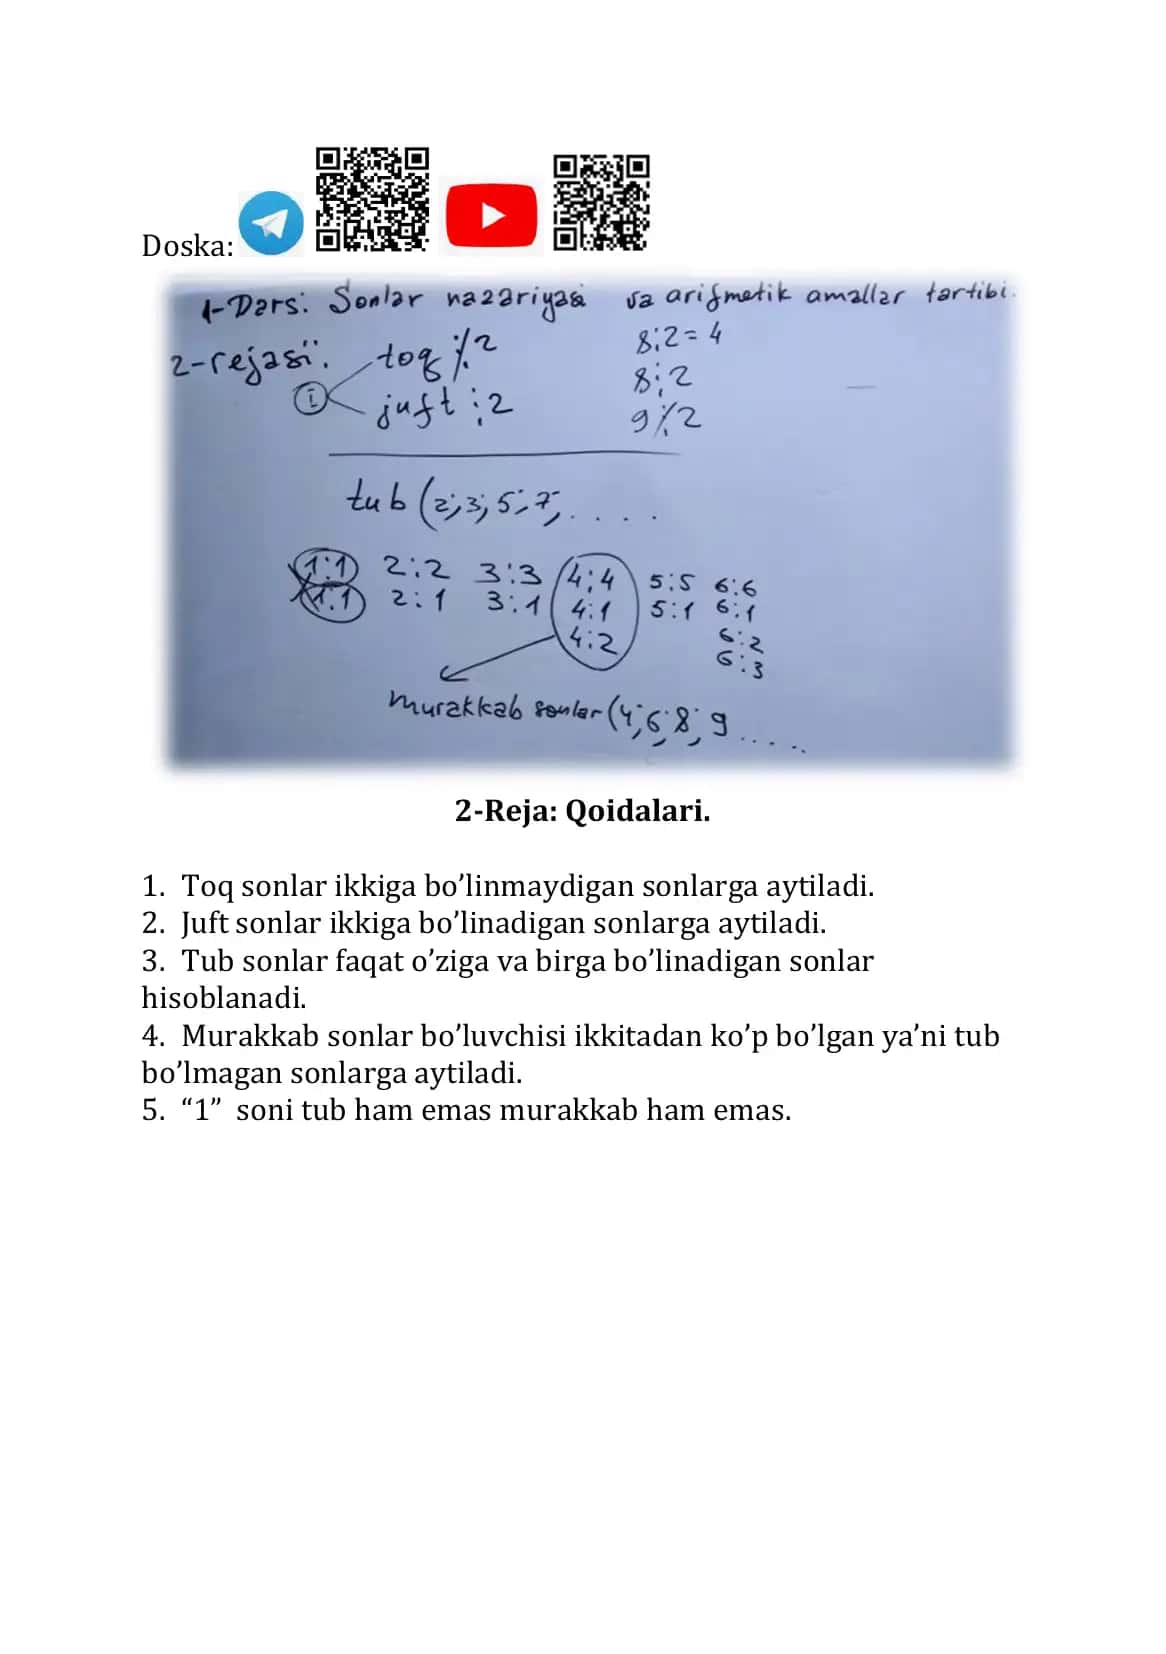 Doska:
1-Dars: Sonlar nazariyasi va arifmetik amallar tartibi.
2-rejasi:
toq ⋮̸ 2
8:2=4
1
juft ⋮ 2
8⋮2
9⋮̸2
tub (2; 3; 5; 7; . . . .
1:1 2:2 3:3 4:4 5:5 6:6
1:1 2:1 3:1 4:1 5:1 6:1
4:2 6:2
6:3
murakkab sonlar (4; 6; 8; 9 . . . . .
2-Reja: Qoidalari.
1. Toq sonlar ikkiga bo’linmaydigan sonlarga aytiladi.
2. Juft sonlar ikkiga bo’linadigan sonlarga aytiladi.
3. Tub sonlar faqat o’ziga va birga bo’linadigan sonlar
hisoblanadi.
4. Murakkab sonlar bo’luvchisi ikkitadan ko’p bo’lgan ya’ni tub
bo’lmagan sonlarga aytiladi.
5. “1” soni tub ham emas murakkab ham emas.